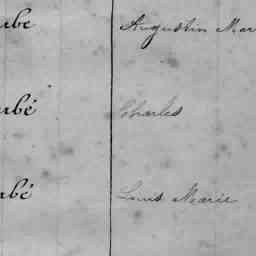 ubé Augustin Mar
ubé Charles
ubé Louis Marie